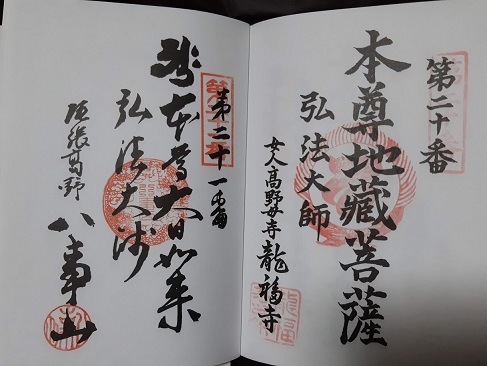 第二十番
本尊地藏菩薩
弘法大師
女人高野 龍福寺
第二十一番
本尊大日如来
弘法大師
尾張高野 八事山